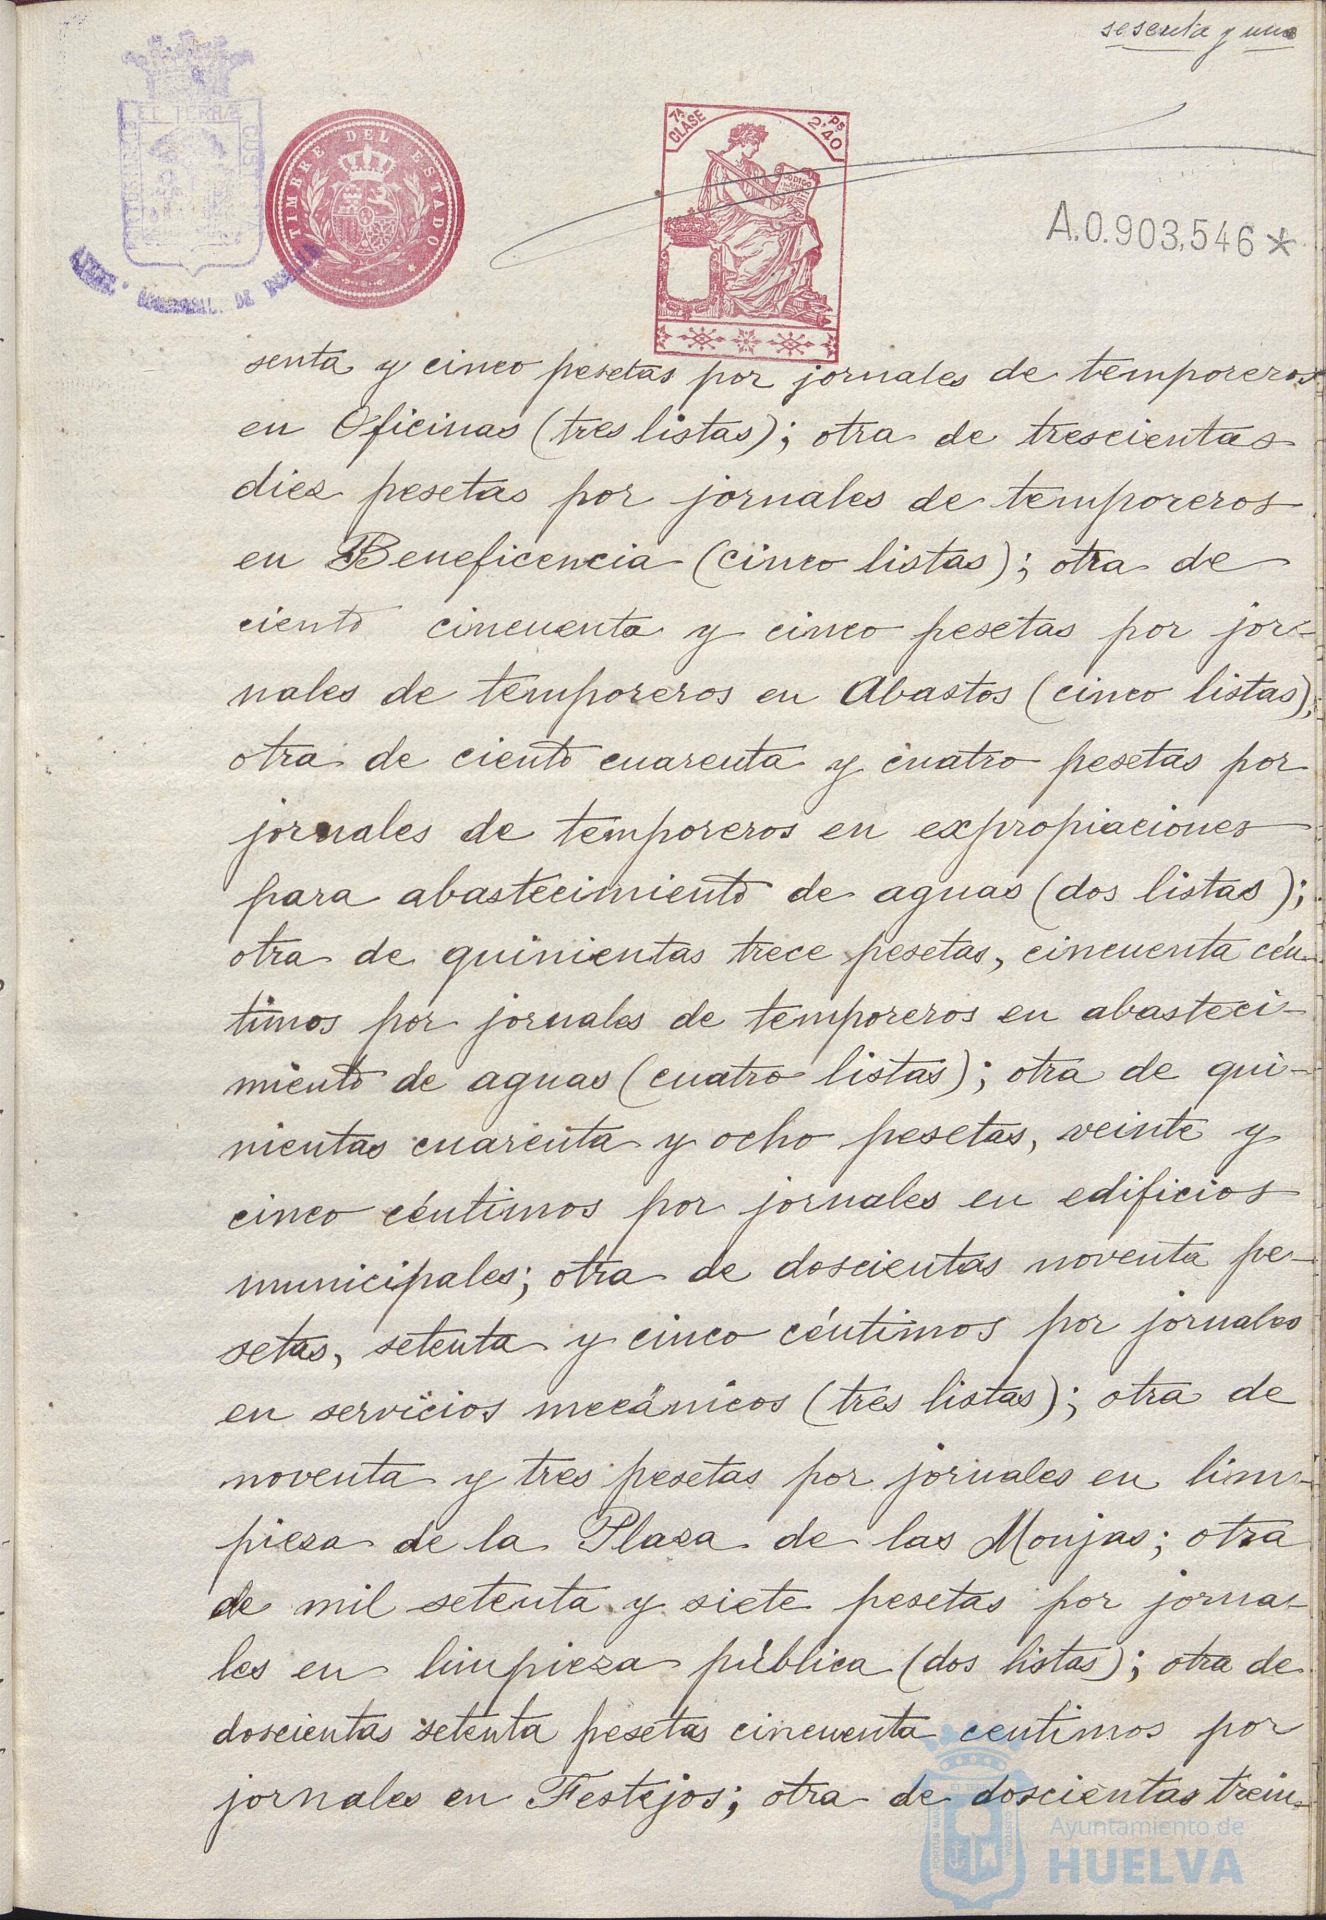 sesenta y uno
ET TERRÆ CUS
TIMBRE DEL ESTADO
7ª CLASE
2'40 PS
CODIGO
A.0.903,546*
MUNICIPAL. DE HUELVA
senta y cinco pesetas por jornales de temporeros
en Oficinas (tres listas); otra de trescientas
diez pesetas por jornales de temporeros
en Beneficencia (cinco listas); otra de
ciento cincuenta y cinco pesetas por jor-
nales de temporeros en Abastos (cinco listas);
otra de ciento cuarenta y cuatro pesetas por
jornales de temporeros en expropiaciones
para abastecimiento de aguas (dos listas);
otra de quinientas trece pesetas, cincuenta cén-
timos por jornales de temporeros en abasteci-
miento de aguas (cuatro listas); otra de qui-
nientas cuarenta y ocho pesetas, veinte y
cinco céntimos por jornales en edificios
municipales; otra de doscientas noventa pe-
setas, setenta y cinco céntimos por jornales
en servicios mecánicos (tres listas); otra de
noventa y tres pesetas por jornales en lim-
pieza de la Plaza de las Monjas; otra
de mil setenta y siete pesetas por jorna-
les en limpieza pública (dos listas); otra de
doscientas setenta pesetas cincuenta centimos por
jornales en Festejos; otra de doscientas trein-
Ayuntamiento de
HUELVA